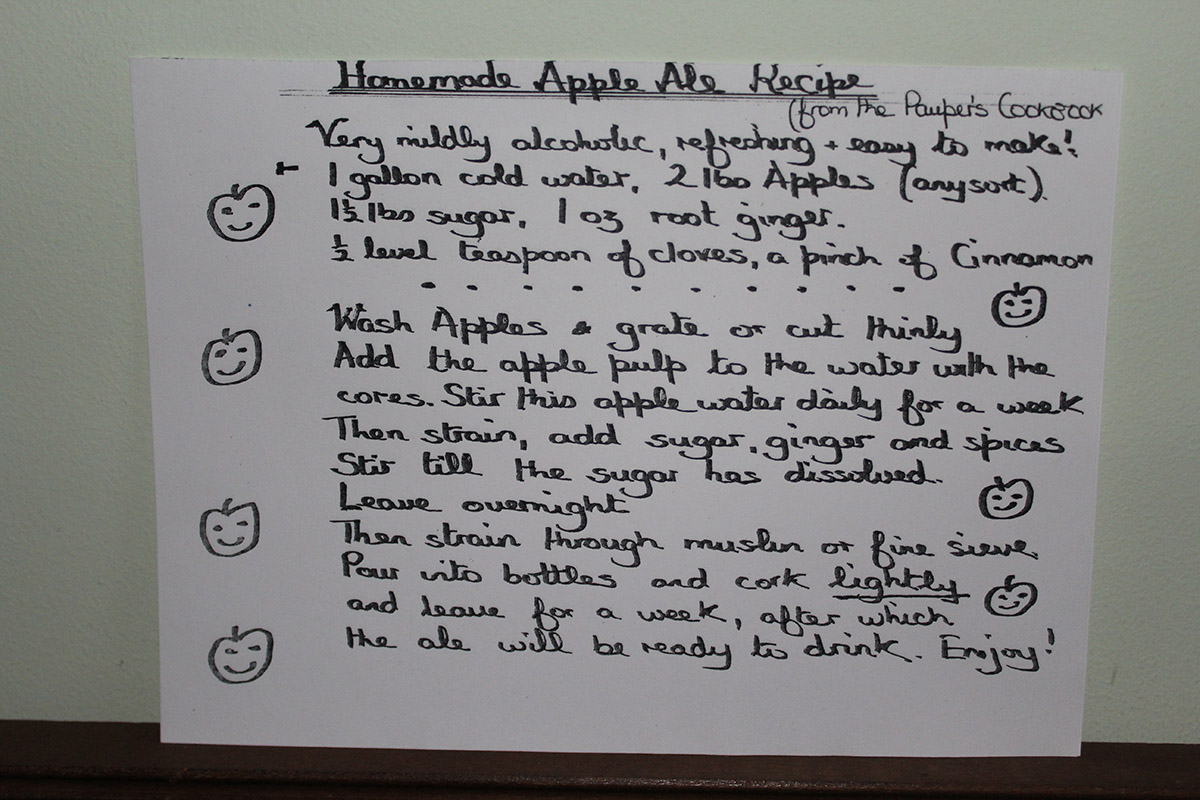 Homemade Apple Ale Recipe
(from the Pauper's Cookbook
Very mildly alcoholic, refreshing + easy to make!
1 gallon cold water, 2 lbs Apples (any sort).
1½ lbs sugar, 1 oz root ginger.
½ level teaspoon of cloves, a pinch of Cinnamon
Wash Apples & grate or cut thinly
Add the apple pulp to the water with the
cores. Stir this apple water daily for a week
Then strain, add sugar, ginger and spices
Stir till the sugar has dissolved.
Leave overnight
Then strain through muslin or fine sieve.
Pour into bottles and cork lightly
and leave for a week, after which
the ale will be ready to drink. Enjoy!